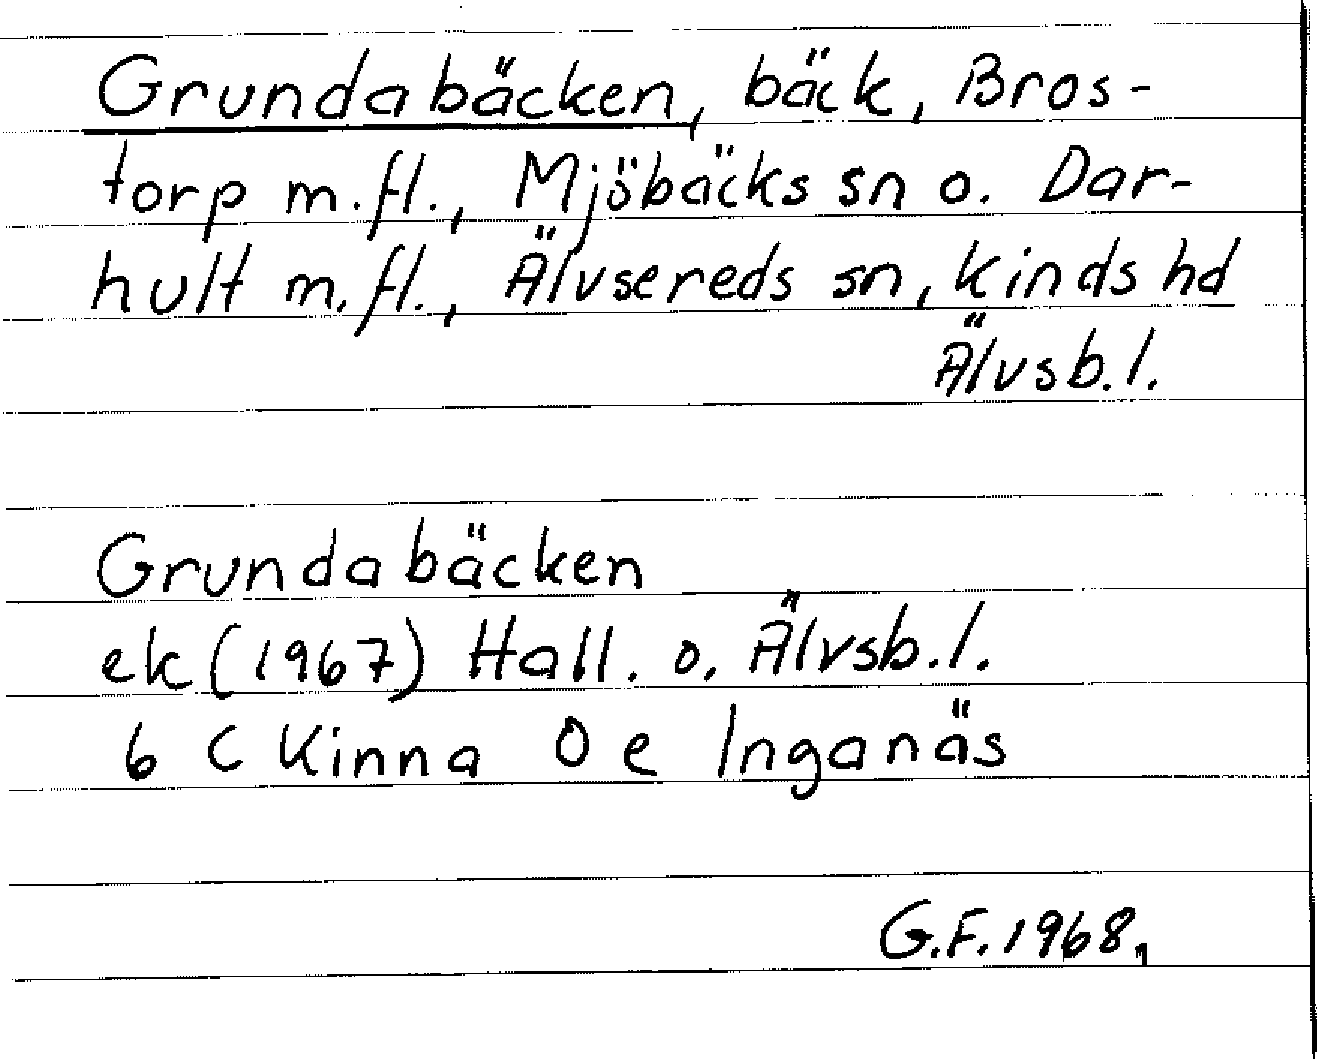 Grundabäcken, bäck, Bros-
torp m.fl., Mjöbäcks sn o. Dar-
hult m.fl., Älvsereds sn, Kinds hd
Älvsb.l.
Grundabäcken
ek (1967) Hall. o. Älvsb.l.
6 C Kinna 0 e Inganäs
G.F. 1968.